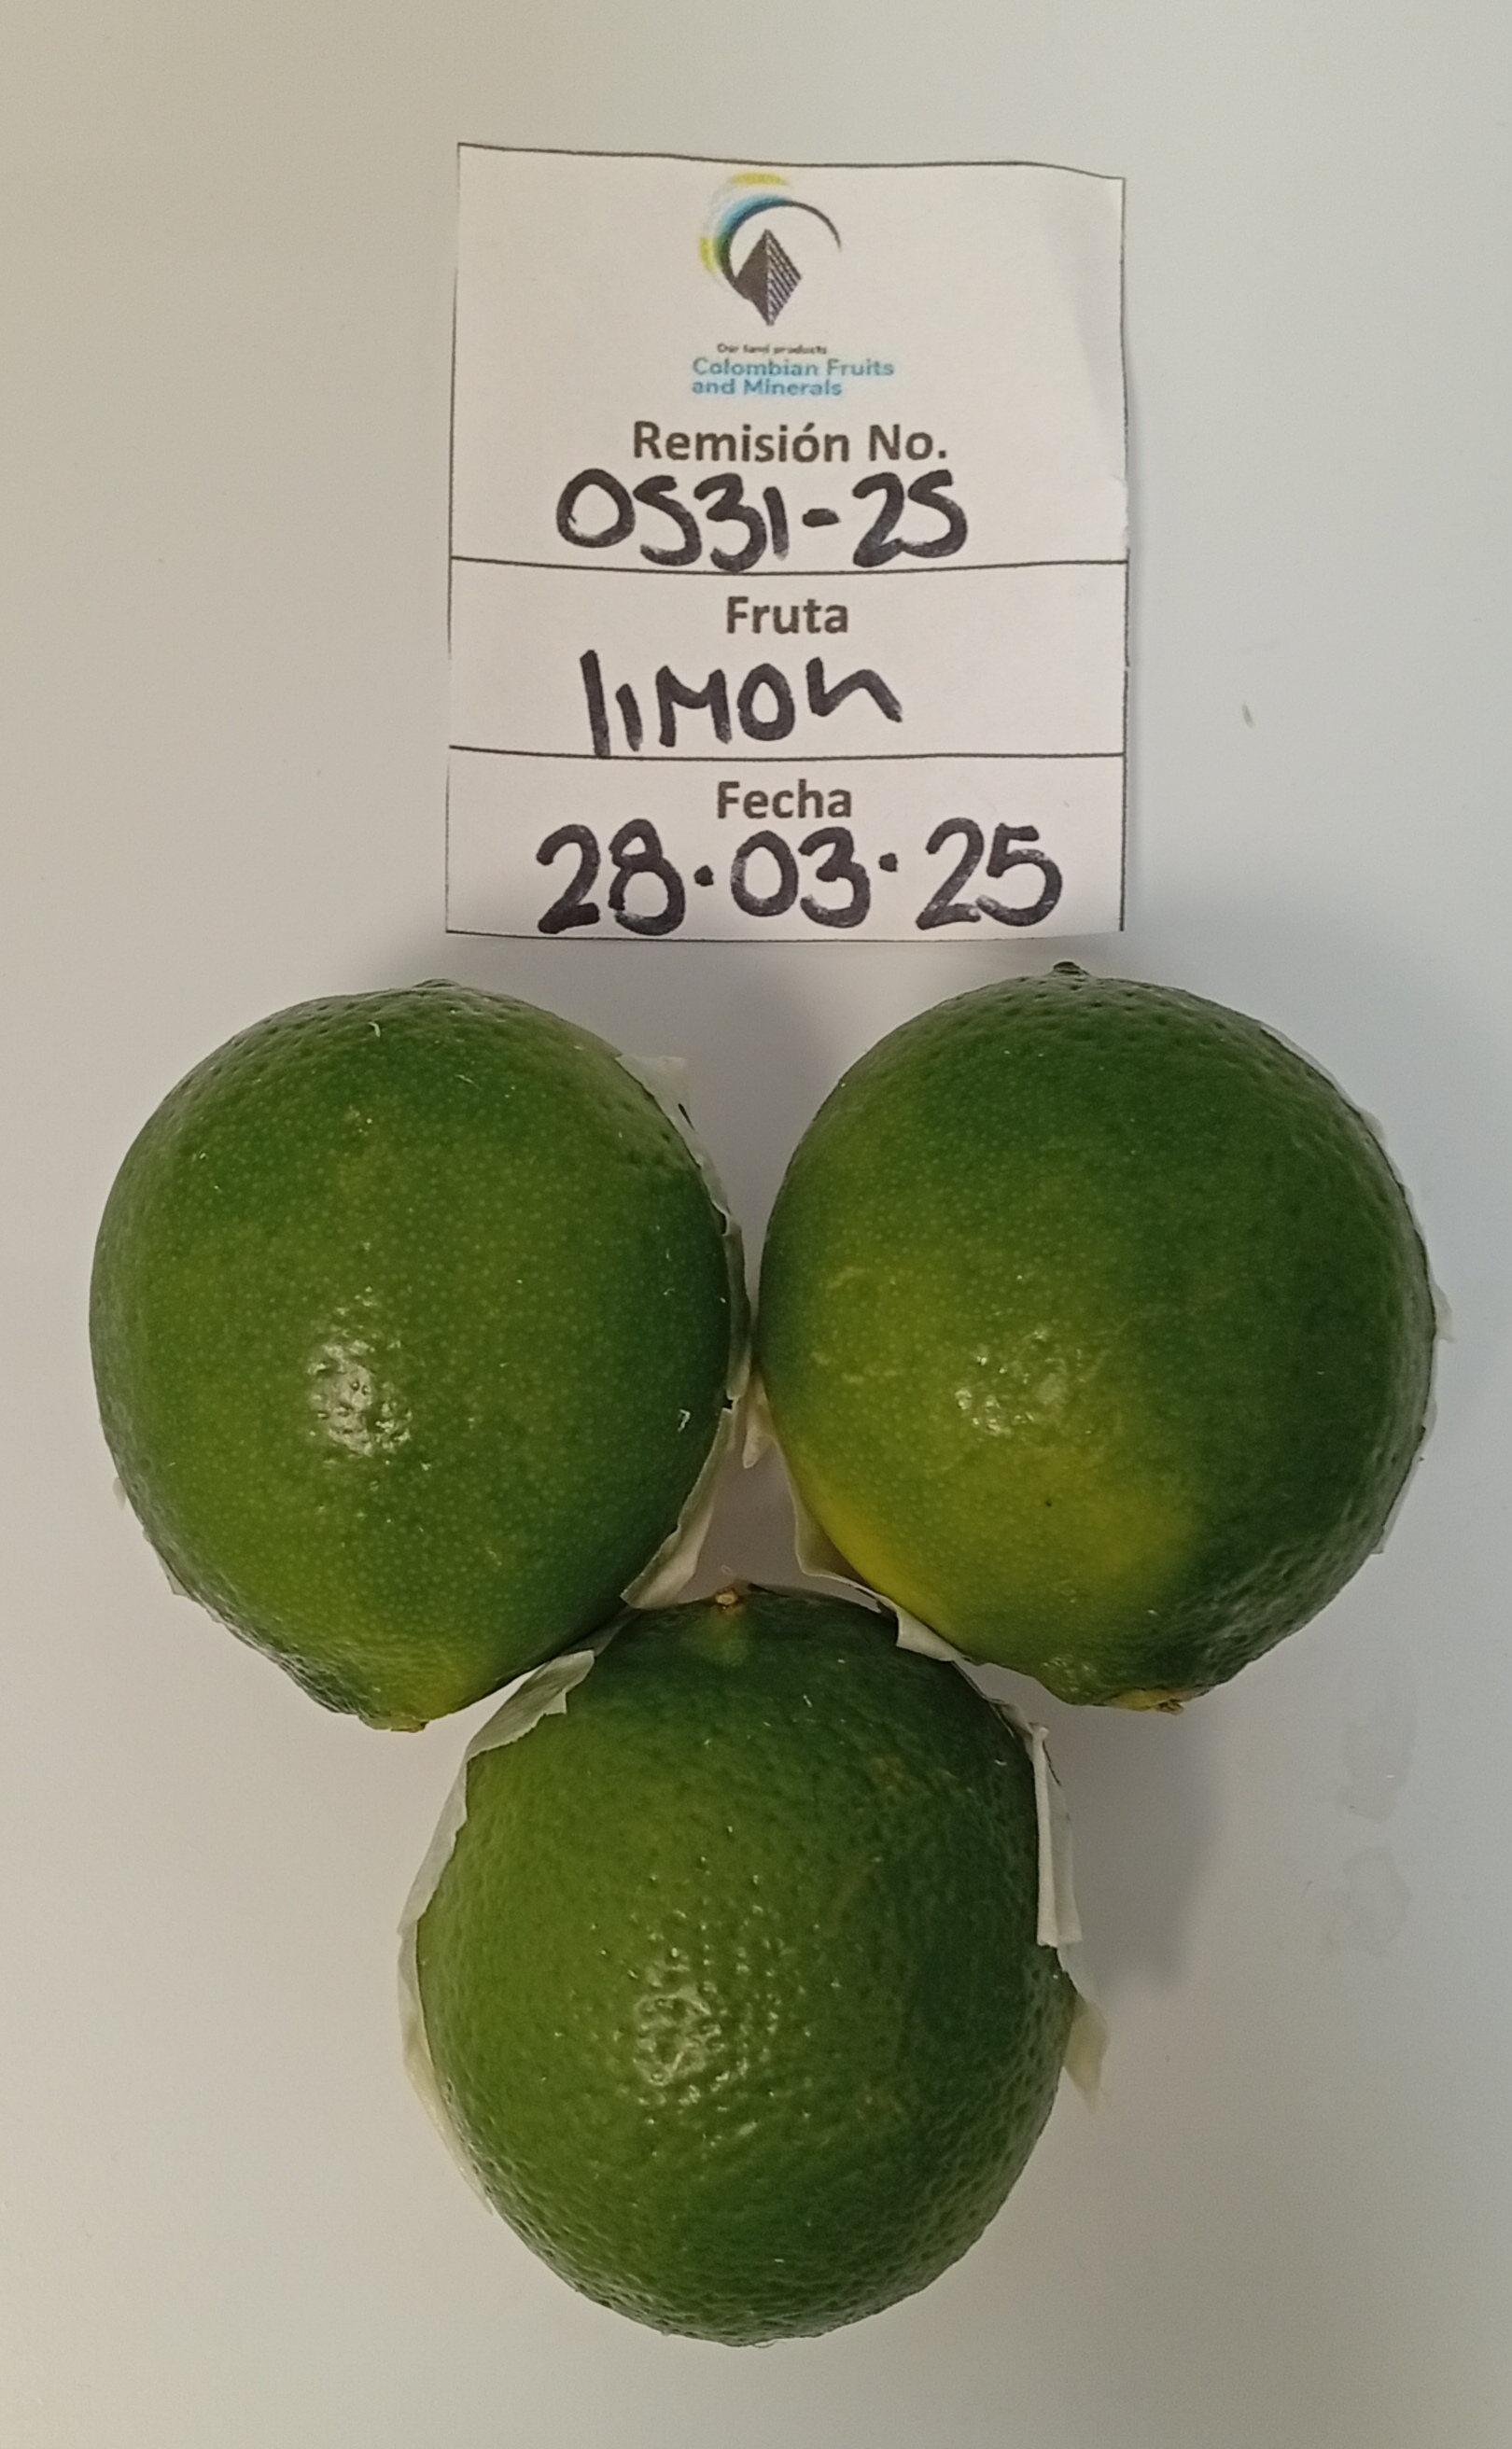 Our land products
Colombian Fruits
and Minerals
Remisión No.
0531-25
Fruta
limon
Fecha
28.03.25